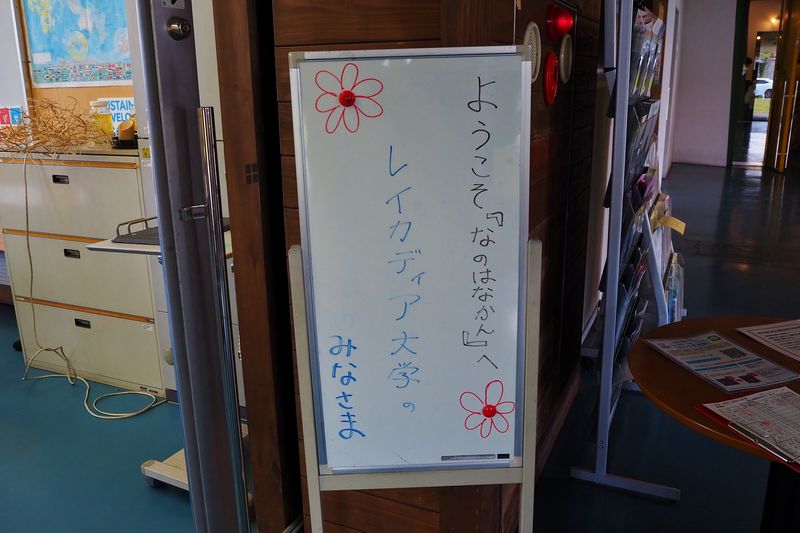 ようこそ『なのはなかん』へ
レイカディア大学の
みなさま
SUSTAIN